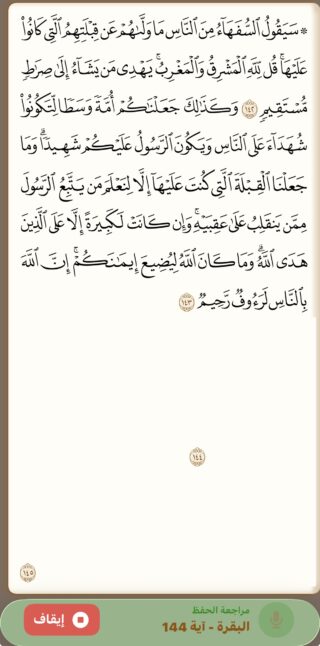 ۞ سَيَقُولُ ٱلسُّفَهَآءُ مِنَ ٱلنَّاسِ مَا وَلَّىٰهُمْ عَن قِبْلَتِهِمُ ٱلَّتِى كَانُوا۟
عَلَيْهَا ۚ قُل لِّلَّهِ ٱلْمَشْرِقُ وَٱلْمَغْرِبُ ۚ يَهْدِى مَن يَشَآءُ إِلَىٰ صِرَٰطٍ
مُّسْتَقِيمٍ ١٤٢ وَكَذَٰلِكَ جَعَلْنَٰكُمْ أُمَّةً وَسَطًا لِّتَكُونُوا۟
شُهَدَآءَ عَلَى ٱلنَّاسِ وَيَكُونَ ٱلرَّسُولُ عَلَيْكُمْ شَهِيدًا ۗ وَمَا
جَعَلْنَا ٱلْقِبْلَةَ ٱلَّتِى كُنتَ عَلَيْهَآ إِلَّا لِنَعْلَمَ مَن يَتَّبِعُ ٱلرَّسُولَ
مِمَّن يَنقَلِبُ عَلَىٰ عَقِبَيْهِ ۚ وَإِن كَانَتْ لَكَبِيرَةً إِلَّا عَلَى ٱلَّذِينَ
هَدَى ٱللَّهُ ۗ وَمَا كَانَ ٱللَّهُ لِيُضِيعَ إِيمَٰنَكُمْ ۚ إِنَّ ٱللَّهَ
بِٱلنَّاسِ لَرَءُوفٌ رَّحِيمٌ ١٤٣
١٤٤
١٤٥
مراجعة الحفظ
البقرة - آية 144
إيقاف